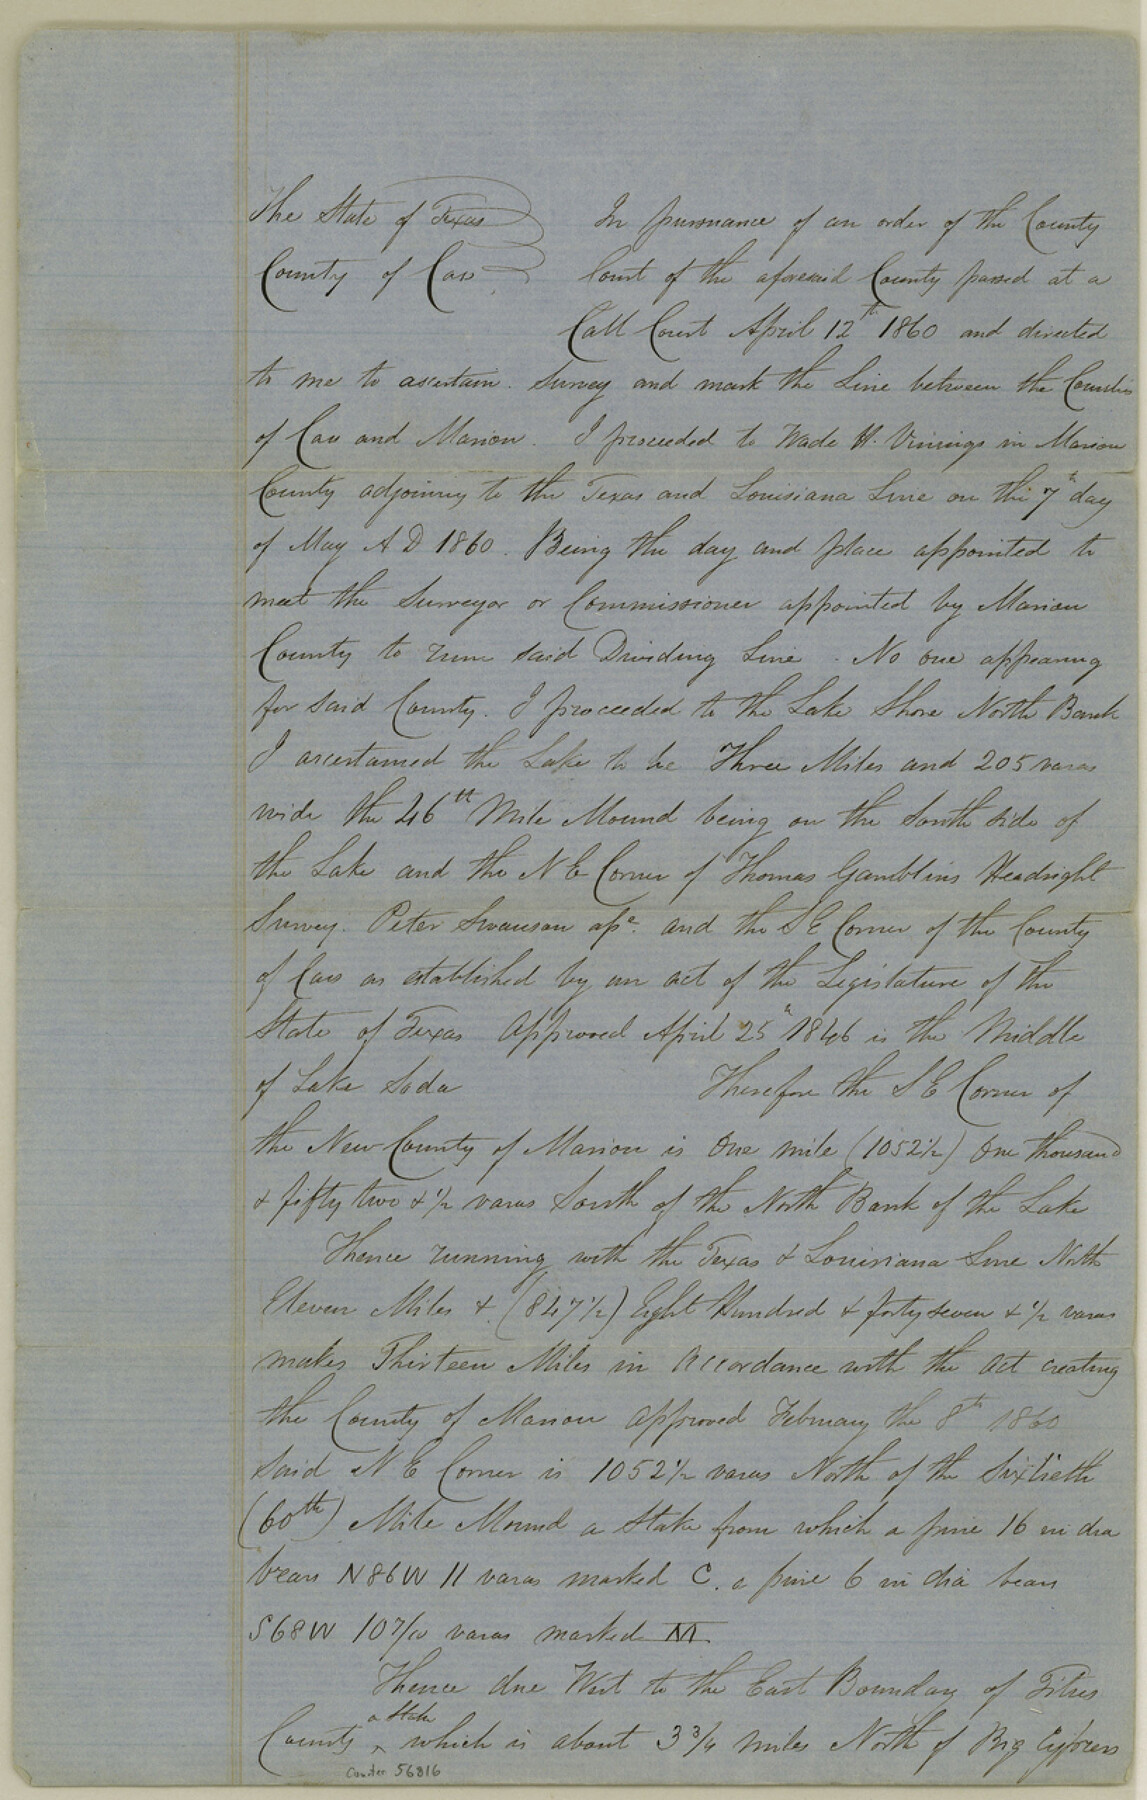 The State of Texas In pursuance of an order of the County
County of Cass Court of the aforesaid County passed at a
Call Court April 12th 1860 and directed
to me to ascertain. Survey and mark the Line between the Counties
of Cass and Marion. I proceeded to Wade H. Vinings in Marion
County adjoining to the Texas and Louisiana Line on the 7th day
of May A D 1860. Being the day and place appointed to
meet the Surveyor or Commissioner appointed by Marion
County to runn said Dividing Line. No one appearing
for said County. I proceeded to the Lake Shore North Bank
I ascertained the Lake to be Three Miles and 205 varas
wide the 46th Mile Mound being on the South side of
the Lake and the N E Corner of Thomas Gamblins Headright
Survey. Peter Swanson ase. and the S E Corner of the County
of Cass as established by an act of the Legislature of the
State of Texas Approved April 25th 1846 is the Middle
of Lake Soda Therefore the S E Corner of
the New County of Marion is One mile (1052½) One thousand
& fifty two & ½ varas South of the North Bank of the Lake
Thence running with the Texas & Louisiana Line North
Eleven Miles & (847½) Eight Hundred & forty seven & ½ varas
makes Thirteen Miles in Accordance with the act creating
the County of Marion approved February the 8th 1860
Said N E Corner is 1052½ varas North of the Sixtieth
(60th) Mile Mound a Stake from which a pine 16 in dia
bears N86W 11 varas marked C. a pine 6 in dia bears
S68W 10 7/10 varas marked M
Thence due West to the East Boundary of Titus
a Stake
County ^ which is about 3¾ miles North of Big Cypress
Counter 56816